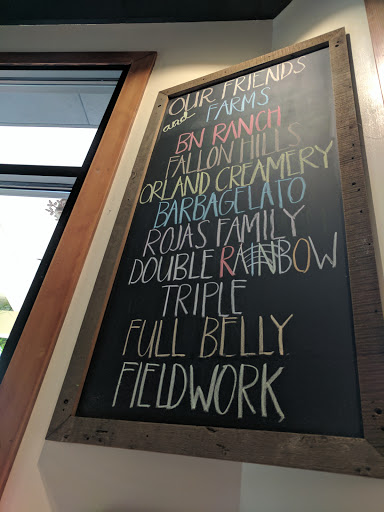 OUR FRIENDS
and FARMS
BN RANCH
FALLON HILLS
ORLAND CREAMERY
BARBAGELATO
ROJAS FAMILY
DOUBLE RAINBOW
TRIPLE
FULL BELLY
FIELDWORK